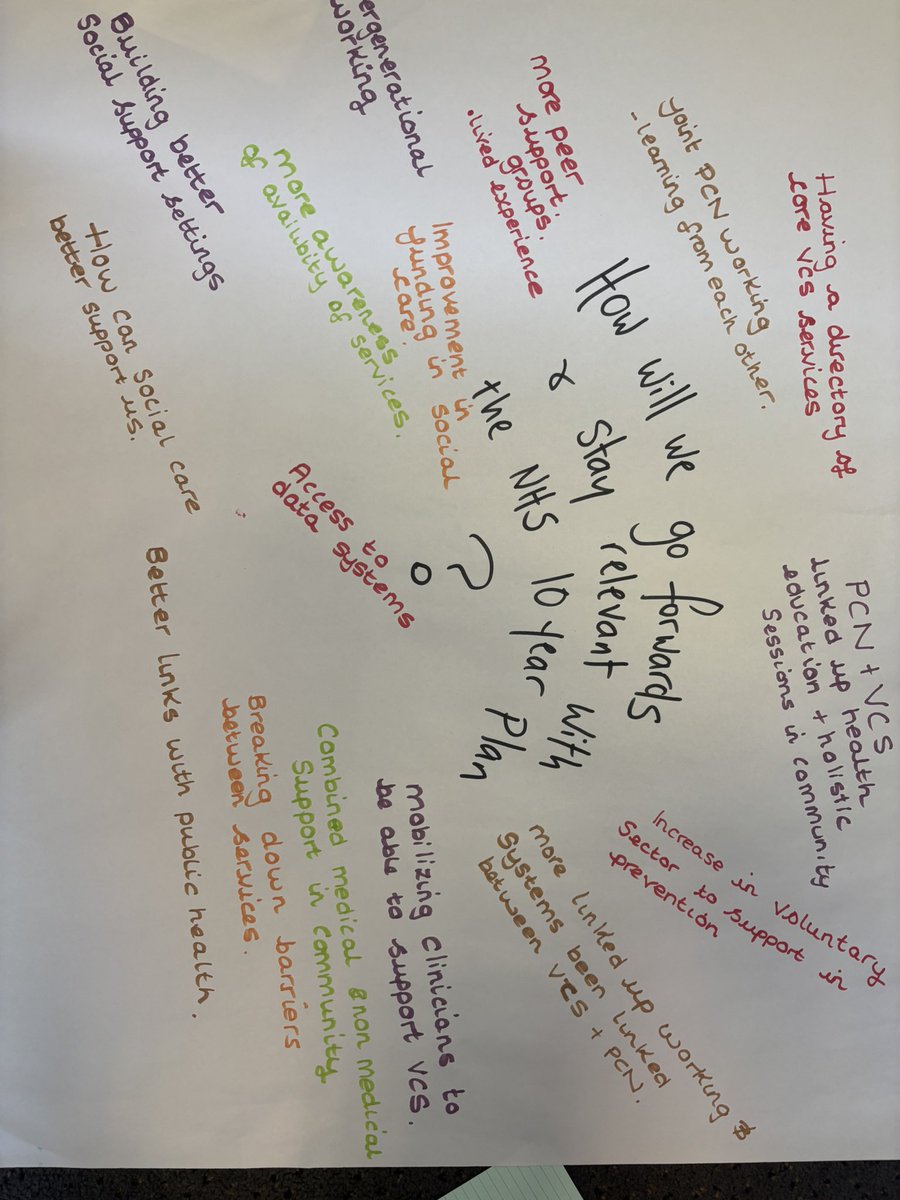 How will we go forwards
& stay relevant with
the NHS 10 year Plan
?
Having a directory of
core VCS services
Joint PCN working
- learning from each other.
more peer
support.
groups.
. lived experience
ergenerational
working
Building better
Social support settings
more awareness
of availubity of services.
Improvement in
funding in social
care.
How can social care
better support us.
Access to
data systems
PCN + VCS
linked up health
education + holistic
Sessions in community
Increase in voluntary
Sector to support in
prevention
more linked up working &
systems been linked
between VCS + PCN.
mobilizing clinicians to
be able to support VCS.
Combined medical & non medical
Support in community
Breaking down barriers
between services.
Better links with public health.